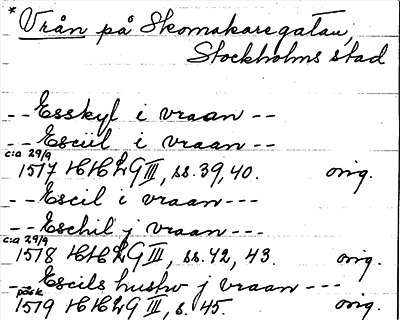 * Vrån på Skomakaregatan,
Stockholms stad
-- Esskyl i vraan --
-- Esciil i vraan --
c:a 29/9
1517 HHLG III, ss. 39, 40. orig.
-- Escil i vraan ---
-- Eschil j vraan ---
c:a 29/9
1518 HHLG III, ss. 42, 43. orig.
-- Escils hustrv j vraan ---
påsk
1519 HHLG III, s. 45. orig.